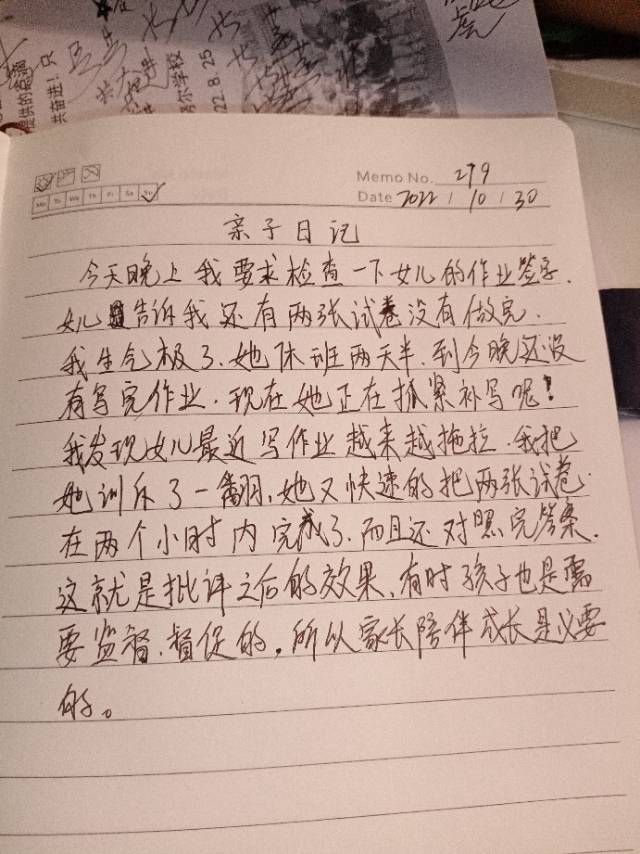 提供的资源
共奋进！只
尔学校
22.8.25
Memo No. 279
Mo Tu We Th Fr Sa Su
Date 2022 / 10 / 30
亲子日记
今天晚上我要求检查一下女儿的作业签字.
女儿告诉我还有两张试卷没有做完.
我生气极了.她休班两天半.到今晚还没
有写完作业.现在她正在抓紧补写呢！
我发现女儿最近写作业越来越拖拉.我把
她训斥了一翻,她又快速的把两张试卷
在两个小时内完成了.而且还对照完答案.
这就是批评之后的效果.有时孩子也是需
要监督.督促的。所以家长陪伴成长是必要
的。